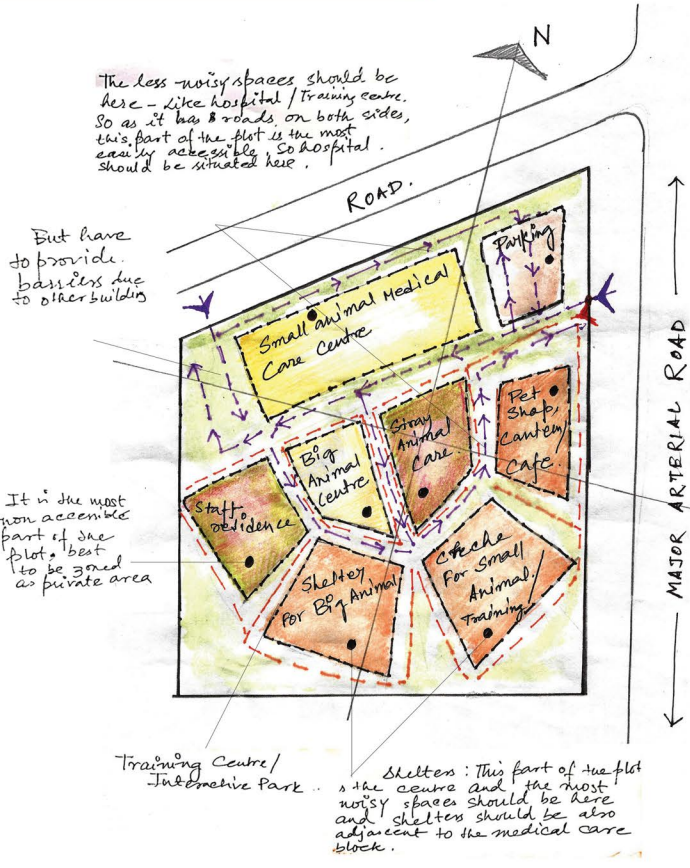 N
The less noisy spaces should be
here - Like hospital / Training centre.
So as it has roads on both sides,
this part of the plot is the most
easily accessible. So hospital.
should be situated here.
ROAD.
But have
to provide.
barriers due
to other building
Parking
Small animal Medical
Care Centre
MAJOR ARTERIAL ROAD
Stray
Animal
Care.
Pet
Shop,
Canteen/
Cafe.
Big
Animal
Centre
Staff
residence
It is the most
non accessible
part of the
plot, best
to be zoned
as private area
Shelter
For Big Animal
Creche
For Small
Animal/
Training
Training Centre/
Interactive Park.
Shelters: This part of the plot
is the centre and the most
noisy spaces should be here
and shelters should be also
adjascent to the medical care
block.